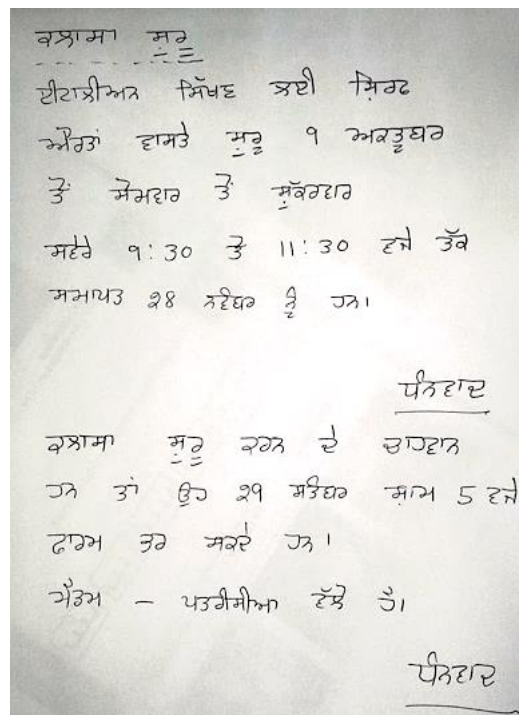 ਕਲਾਸਾ ਸ਼ੁਰੂ
ਈਟਾਲੀਅਨ ਸਿੱਖਣ ਲਈ ਸਿਰਫ
ਔਰਤਾਂ ਵਾਸਤੇ ਸ਼ੁਰੂ ੧ ਅਕਤੂਬਰ
ਤੋਂ ਸੋਮਵਾਰ ਤੋਂ ਸ਼ੁੱਕਰਵਾਰ
ਸਵੇਰੇ 9:30 ਤੋ 11:30 ਵਜੇ ਤੱਕ
ਸਮਾਪਤ 28 ਨਵੰਬਰ ਨੂੰ ਹਨ।
ਧੰਨਵਾਦ
ਕਲਾਸਾ ਸ਼ੁਰੂ ਕਰਨ ਦੇ ਚਾਹਵਾਨ
ਹਨ ਤਾਂ ਉਹ 29 ਸਤੰਬਰ ਸ਼ਾਮ 5 ਵਜੇ
ਫਾਰਮ ਭਰ ਸਕਦੇ ਹਨ।
ਮੈਡਮ - ਪਤਰੀਸੀਆ ਵੱਲੋ ਹੈ।
ਧੰਨਵਾਦ